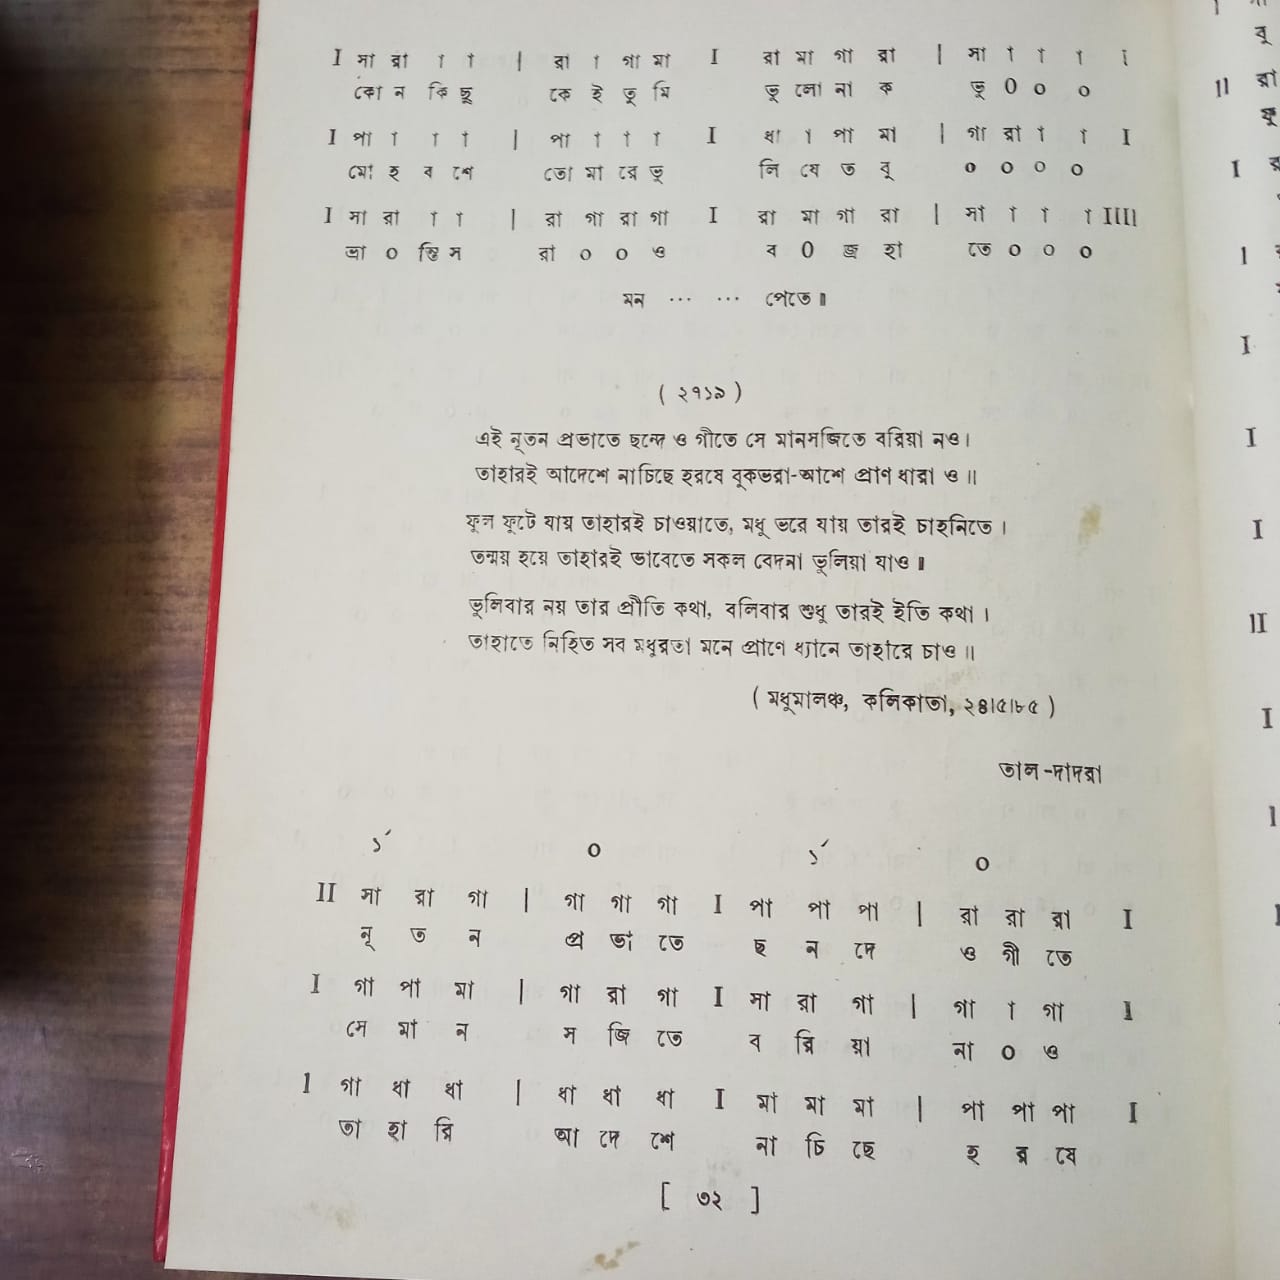 I সা রা া া | রা া গা মা I রা মা গা রা | সা া া া I
কো ন কি ছু কে ই তু মি ভু লো না ক ভু 0 0 0
I পা া া া | পা া া া I ধা া পা মা | গা রা া া I
মো হ ব শে তো মা রে ভু লি যে ত বু 0 0 0 0
I সা রা া া | রা গা রা গা I রা মা গা রা | সা া া া IIII
ভ্রা 0 ন্তি স রা 0 0 ও ব 0 জ্র হা তে 0 0 0
মন ... ... পেতে॥
( ২৭১৯ )
এই নূতন প্রভাতে ছন্দে ও গীতে সে মানসজিতে বরিয়া নও।
তাহারই আদেশে নাচিছে হরষে বুকভরা-আশে প্রাণ ধারা ও॥
ফুল ফুটে যায় তাহারই চাওয়াতে, মধু ভরে যায় তারই চাহনিতে।
তন্ময় হয়ে তাহারই ভাবেতে সকল বেদনা ভুলিয়া যাও॥
ভুলিবার নয় তার প্রীতি কথা, বলিবার শুধু তারই ইতি কথা।
তাহাতে নিহিত সব মধুরতা মনে প্রাণে ধ্যানে তাহারে চাও॥
( মধুমালঞ্চ, কলিকাতা, ২৪।৫।৮৫ )
তাল-দাদরা
১´ 0 ১´ 0
II সা রা গা | গা গা গা I পা পা পা | রা রা রা I
নূ ত ন প্র ভা তে ছ ন দে ও গী তে
I গা পা মা | গা রা গা I সা রা গা | গা া গা I
সে মা ন স জি তে ব রি য়া না 0 ও
I গা ধা ধা | ধা ধা ধা I মা মা মা | পা পা পা I
তা হা রি আ দে শে না চি ছে হ র ষে
[ ৩২ ]